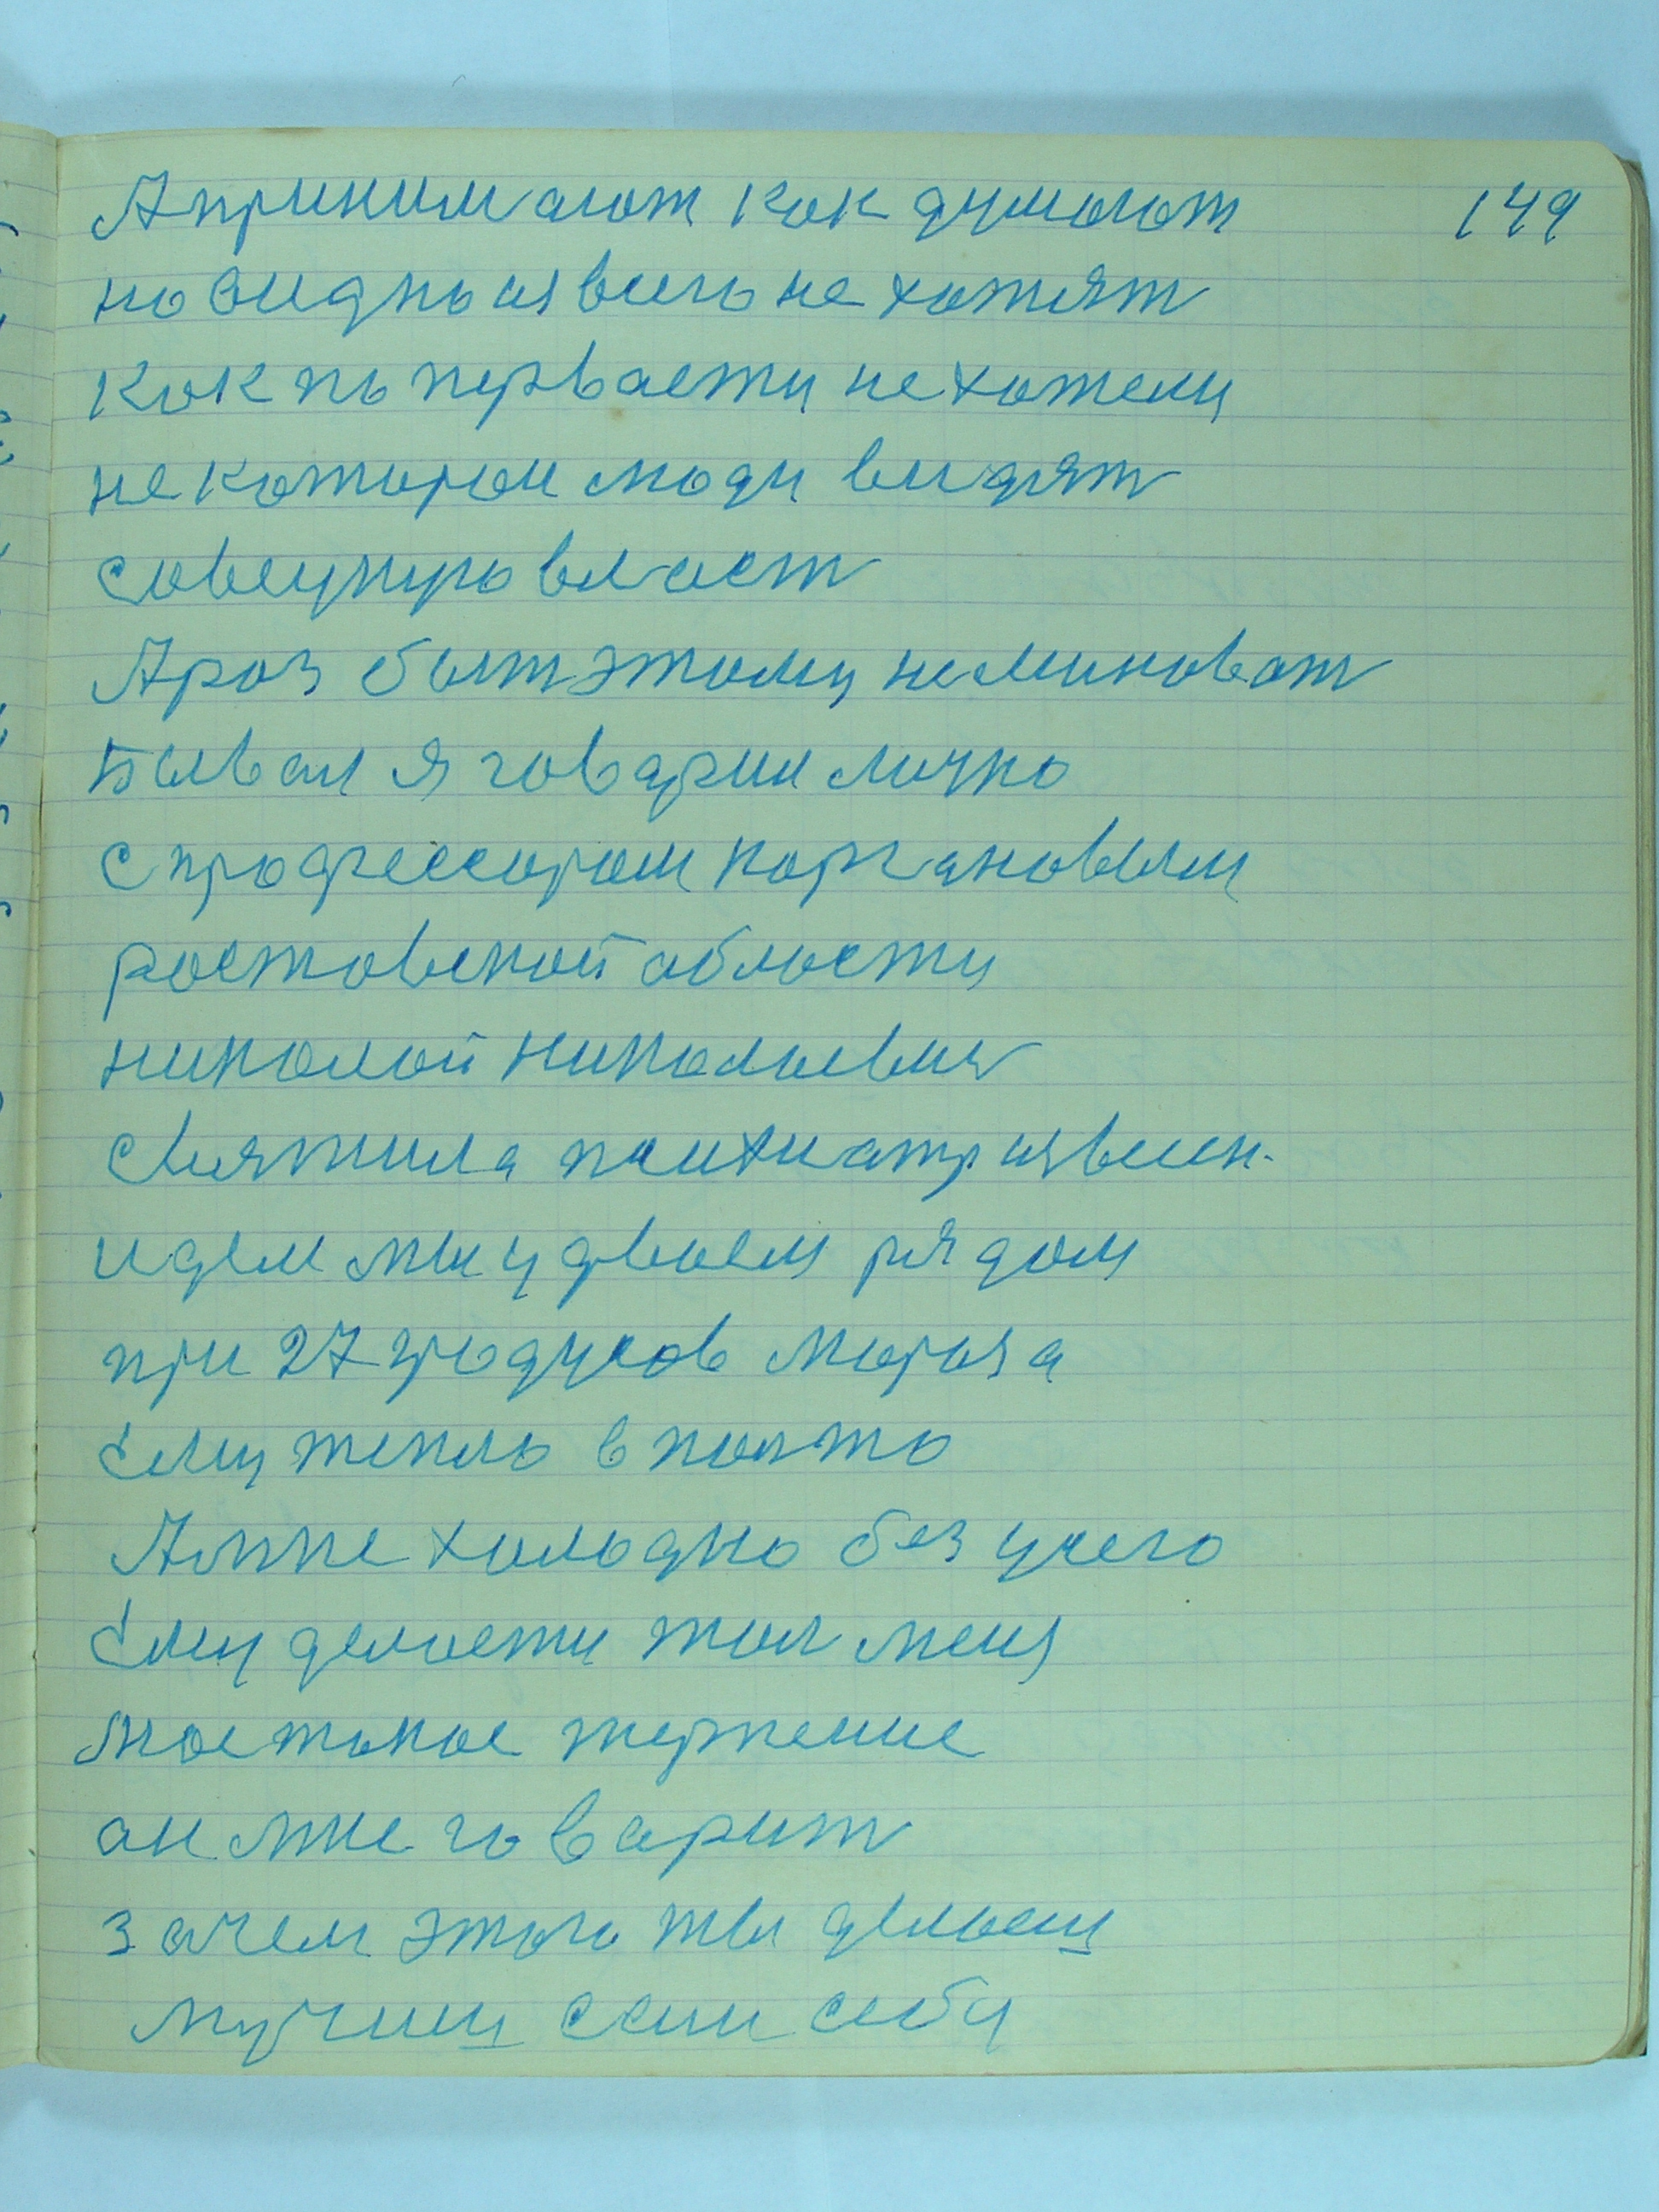 А принимают как думают 149
но видно из всего не хотят
как по первасти не хотели
некоторои люди видят
совецкую власт
А раз быт этому не миноват
Бывал я говарил лично
с профессором Каргановым
ростовской области
николай николаевич
считила психиатр извесн.
идем мы у двоем рядом
при 27 градусов мороза
Ему тепло в палто
А мне холодно без учего
Ему
мое такое терпение
он мне говарит
зачем этого ты делаеш
мучиш сам себя